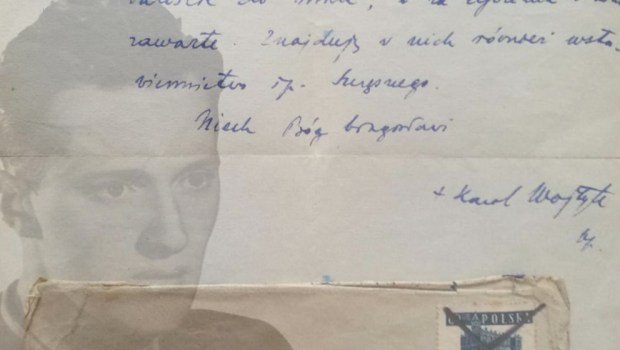 do mnie, a za
zawarte. Znajduję w nich również wsta-
wiennictwo śp.
Niech Bóg błogosławi
+ Karol Wojtyła
bp.
POLSKA